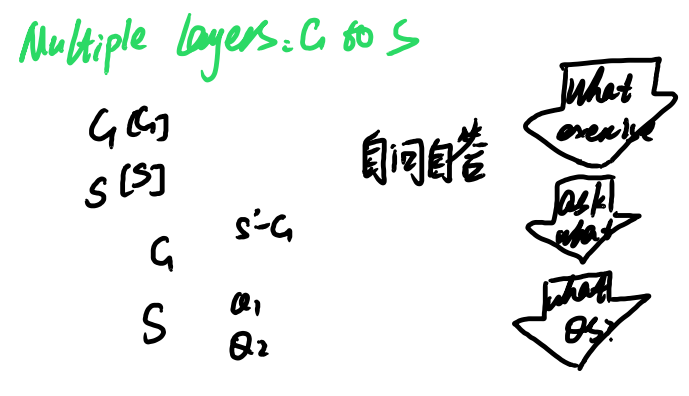 Multiple Layers: G to S
G [G]
S [S]
G
S'-G
S
Q1
Q2
自问自答
What
exercise
ask
what
what
Qs?